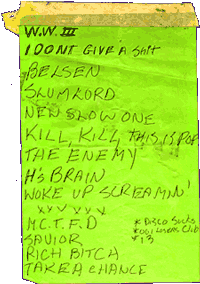 W.W. III
I DONT GIVE A Shit
BELSEN
SLUMLORD
NEW SLOW ONE
KILL, KILL, THIS IS POP
THE ENEMY
H's BRAIN
WOKE UP SCREAMIN'
M.C.T.F.D
SAVIOR
RICH BITCH
TAKE A CHANCE
DISCO SUCKS
LOSERS CLUB
F13